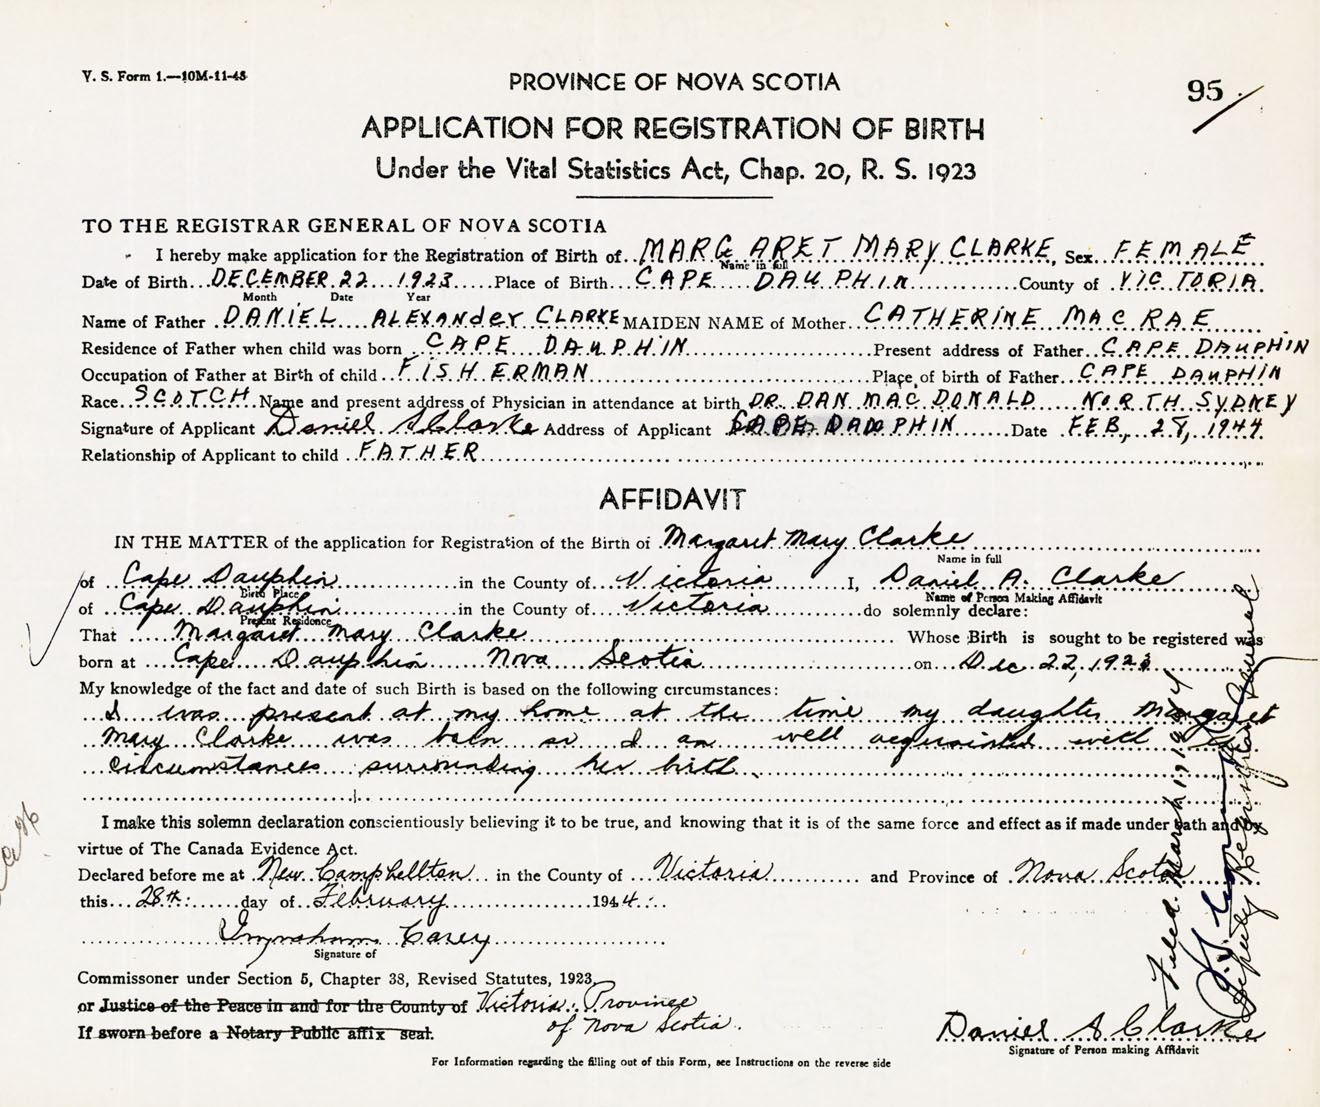 V. S. Form 1.—10M-11-43
PROVINCE OF NOVA SCOTIA
95
APPLICATION FOR REGISTRATION OF BIRTH
Under the Vital Statistics Act, Chap. 20, R. S. 1923
TO THE REGISTRAR GENERAL OF NOVA SCOTIA
I hereby make application for the Registration of Birth of MARGARET MARY CLARKE, Sex FEMALE
Name in full
Date of Birth DECEMBER 22 1923 Place of Birth CAPE DAUPHIN County of VICTORIA
Month Date Year
Name of Father DANIEL ALEXANDER CLARKE MAIDEN NAME of Mother CATHERINE MACRAE
Residence of Father when child was born CAPE DAUPHIN Present address of Father CAPE DAUPHIN
Occupation of Father at Birth of child FISHERMAN Place of birth of Father CAPE DAUPHIN
Race SCOTCH Name and present address of Physician in attendance at birth DR. DAN MACDONALD NORTH SYDNEY
Signature of Applicant Daniel A Clarke Address of Applicant CAPE DAUPHIN Date FEB, 28, 1944
Relationship of Applicant to child FATHER
AFFIDAVIT
IN THE MATTER of the application for Registration of the Birth of Margaret Mary Clarke
Name in full
of Cape Dauphin in the County of Victoria I, Daniel A. Clarke
Birth Place Name of Person Making Affidavit
of Cape Dauphin in the County of Victoria do solemnly declare:
Present Residence
That Margaret Mary Clarke Whose Birth is sought to be registered was
born at Cape Dauphin Nova Scotia on Dec 22, 1923
My knowledge of the fact and date of such Birth is based on the following circumstances:
I was present at my home at the time my daughter Margaret
Mary Clarke was born so I am well acquainted with
circumstances surrounding her birth.
I make this solemn declaration conscientiously believing it to be true, and knowing that it is of the same force and effect as if made under oath and by
virtue of The Canada Evidence Act.
Declared before me at New Campbellton in the County of Victoria and Province of Nova Scotia
this 28th day of February 1944
Carey
Signature of
Commissoner under Section 5, Chapter 38, Revised Statutes, 1923,
or Justice of the Peace in and for the County of Victoria Province
If sworn before a Notary Public affix seal. of Nova Scotia.
Daniel A Clarke
Signature of Person making Affidavit
For Information regarding the filling out of this Form, see Instructions on the reverse side
Filed March 17 1944
Deputy Registrar General